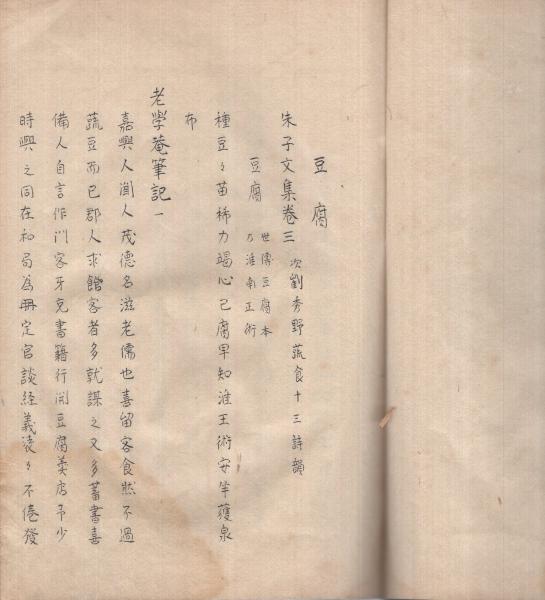 豆腐
朱子文集卷三 次劉秀野蔬食十三詩韻
豆腐 世傳豆腐本
乃淮南王術
種豆々苗稀力竭心已腐早知淮王術安坐獲泉
布
老學菴筆記一
嘉興人聞人茂德名滋老儒也喜留客食然不過
蔬豆而已郡人求館客者多就謀之又多蓄書喜
借人自言作門客牙充書籍行開豆腐羹店予少
時與之同在和局為刪定官談經義滾々不倦發